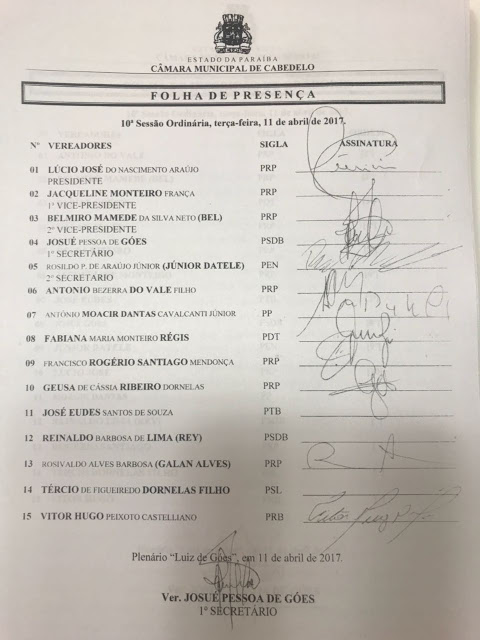 ESTADO DA PARAÍBA
CÂMARA MUNICIPAL DE CABEDELO
FOLHA DE PRESENÇA
10ª Sessão Ordinária, terça-feira, 11 de abril de 2017.
Nº VEREADORES SIGLA ASSINATURA
01 LÚCIO JOSÉ DO NASCIMENTO ARAÚJO PRP
PRESIDENTE
02 JACQUELINE MONTEIRO FRANÇA PRP
1ª VICE-PRESIDENTE
03 BELMIRO MAMEDE DA SILVA NETO (BEL) PRP
2º VICE-PRESIDENTE
04 JOSUÉ PESSOA DE GÓES PSDB
1º SECRETÁRIO
05 ROSILDO P. DE ARAÚJO JÚNIOR (JÚNIOR DATELE) PEN
2º SECRETARIO
06 ANTONIO BEZERRA DO VALE FILHO PRP
07 ANTÔNIO MOACIR DANTAS CAVALCANTI JÚNIOR PP
08 FABIANA MARIA MONTEIRO RÉGIS PDT
09 FRANCISCO ROGÉRIO SANTIAGO MENDONÇA PRP
10 GEUSA DE CÁSSIA RIBEIRO DORNELAS PRP
11 JOSÉ EUDES SANTOS DE SOUZA PTB
12 REINALDO BARBOSA DE LIMA (REY) PSDB
13 ROSIVALDO ALVES BARBOSA (GALAN ALVES) PRP
14 TÉRCIO DE FIGUEIREDO DORNELAS FILHO PSL
15 VITOR HUGO PEIXOTO CASTELLIANO PRB
Plenário "Luiz de Góes", em 11 de abril de 2017.
Ver. JOSUÉ PESSOA DE GÓES
1º SECRETÁRIO